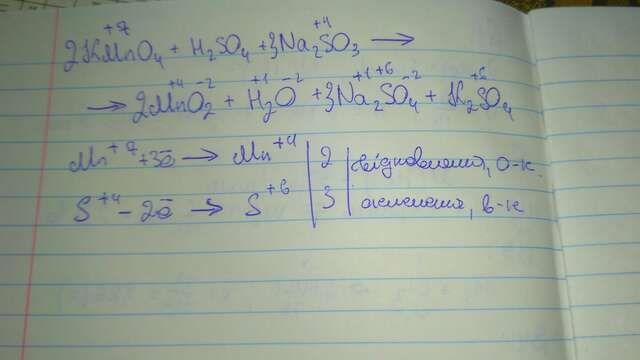 2KMn⁺⁷O₄ + H₂SO₄ + 3Na₂S⁺⁴O₃ →
→ 2Mn⁺⁴O₂⁻² + H₂⁺¹O⁻² + 3Na₂⁺¹S⁺⁶O₄⁻² + K₂S⁺⁶O₄
Mn⁺⁷ + 3ē → Mn⁺⁴ | 2 | відновлення, о-к.
S⁺⁴ - 2ē → S⁺⁶ | 3 | окислення, в-к